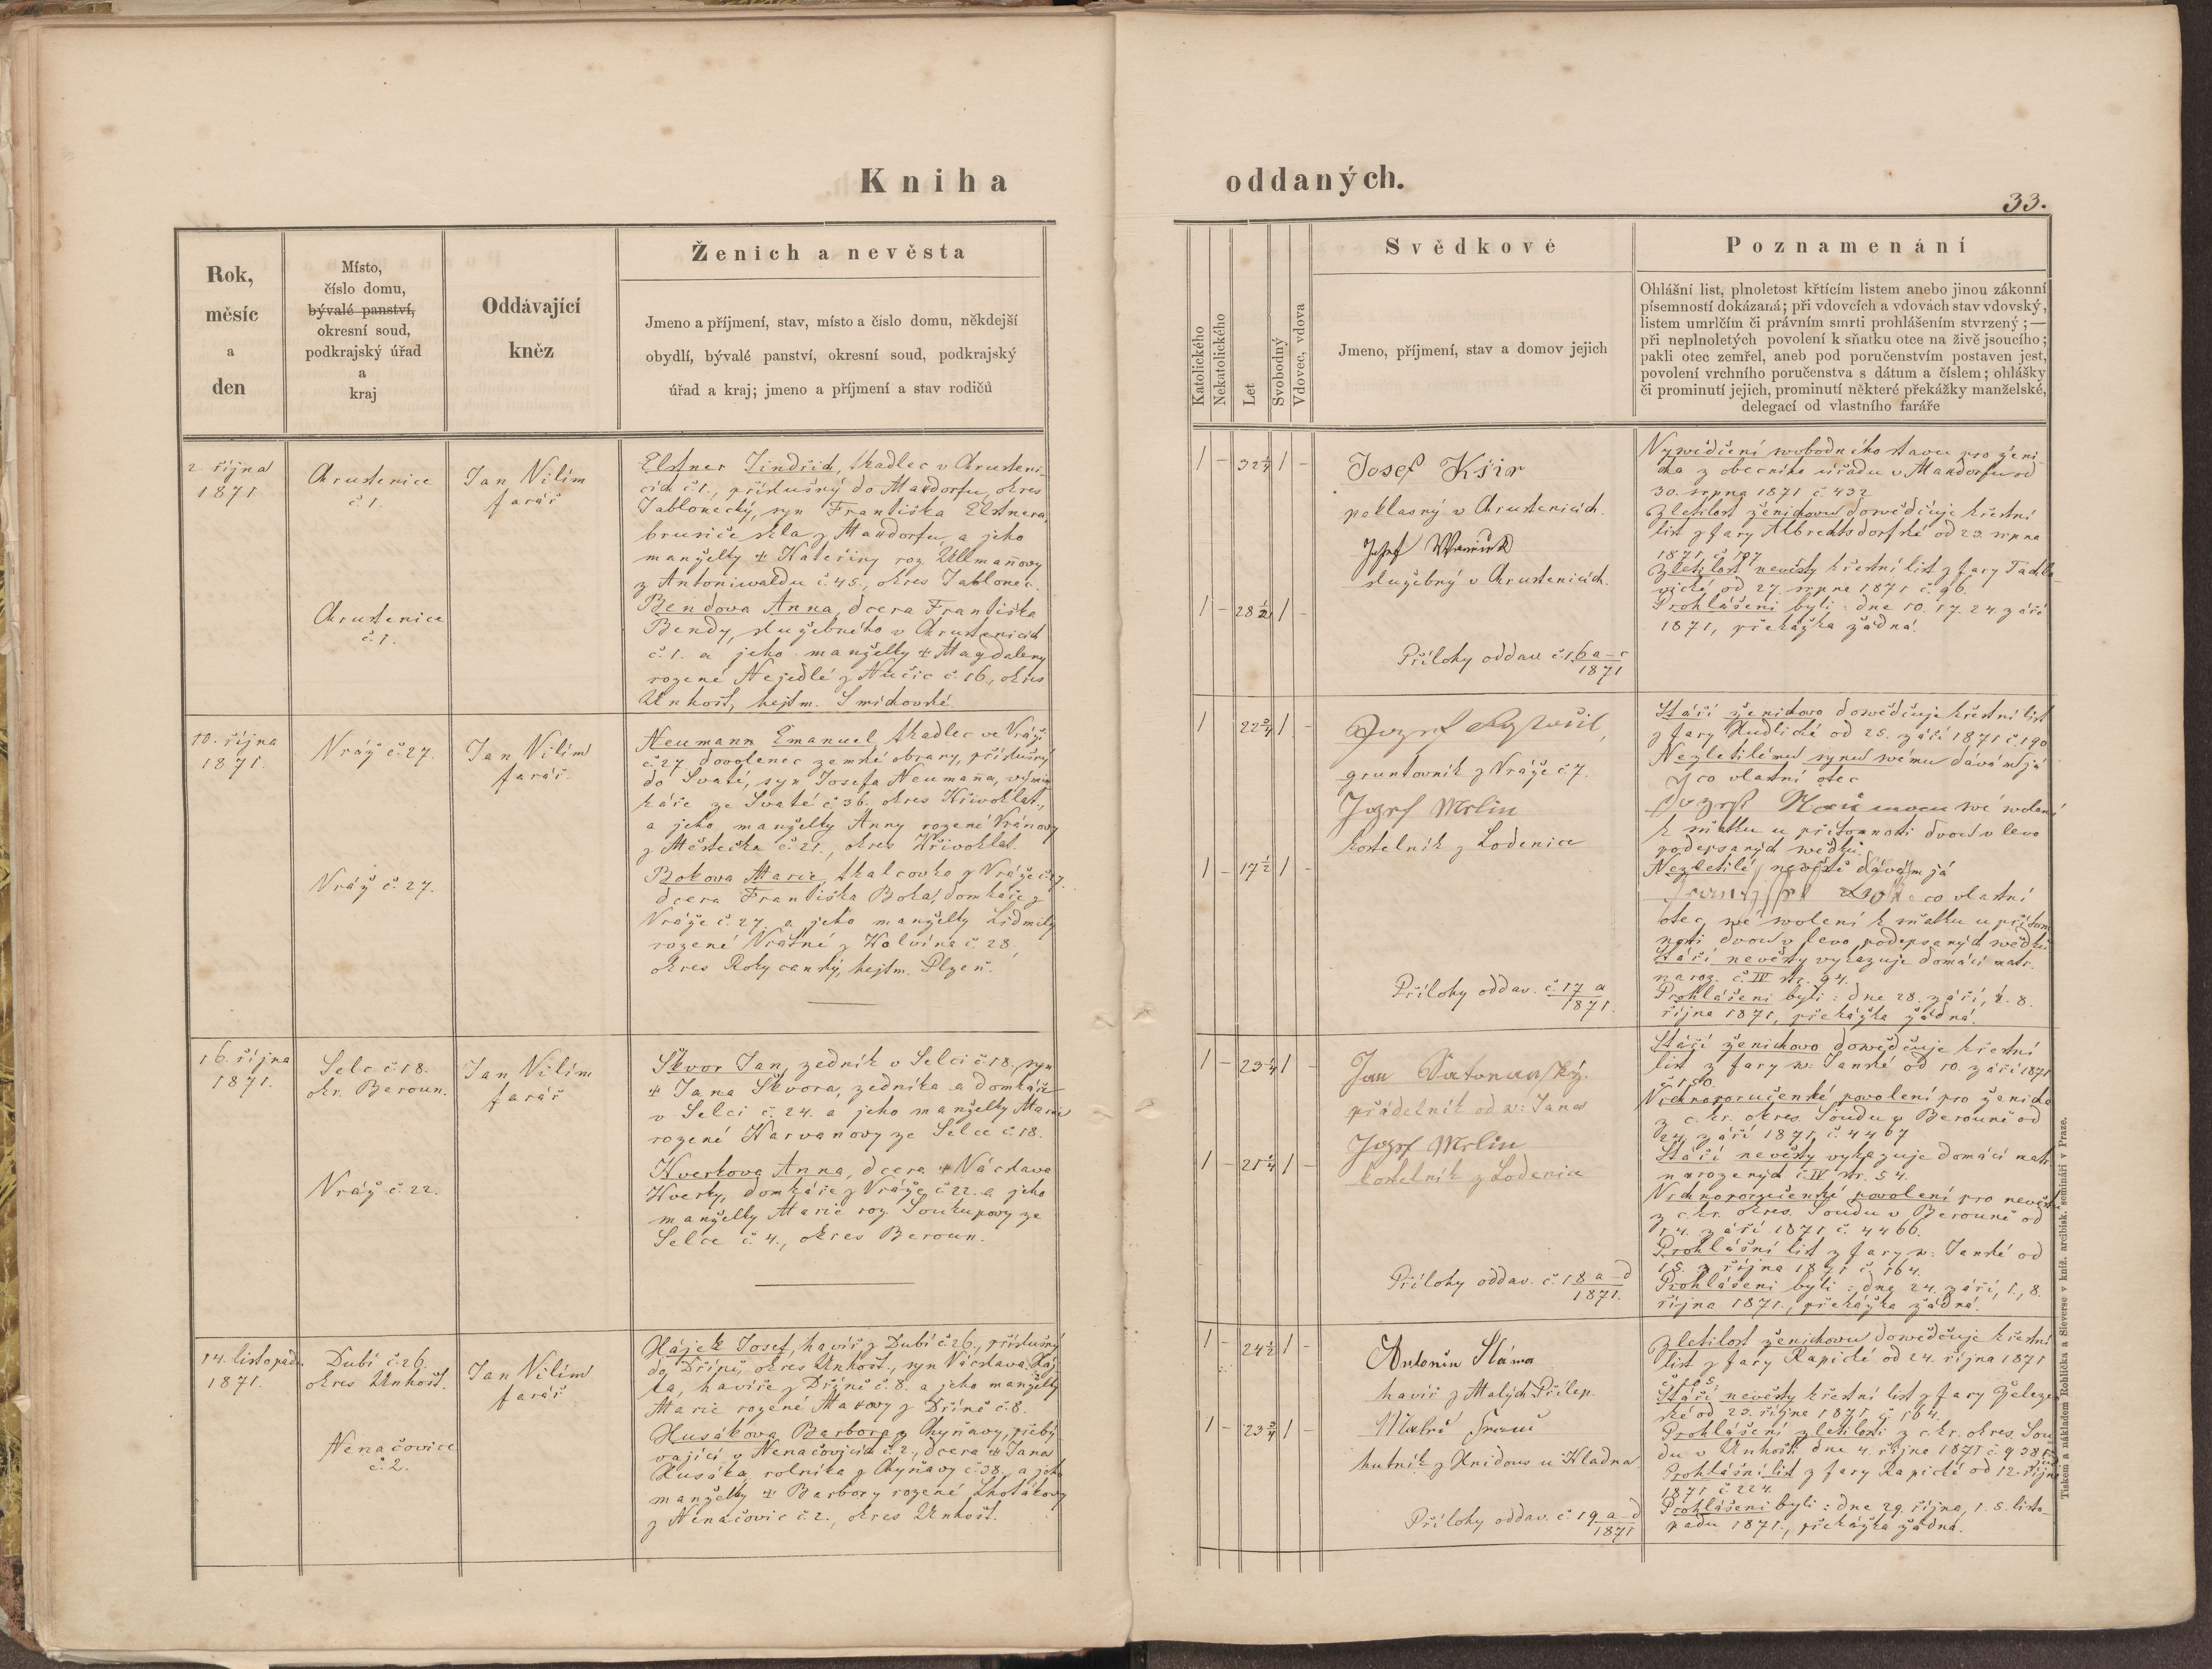 Kniha
oddaných.
33.
Rok,
měsíc
a
den
Místo,
číslo domu,
bývalé panství,
okresní soud,
podkrajský úřad
a
kraj
Oddávající
kněz
Ženich a nevěsta
Jmeno a příjmení, stav, místo a číslo domu, někdejší
obydlí, bývalé panství, okresní soud, podkrajský
úřad a kraj; jmeno a příjmení a stav rodičů
Katolického
Nekatolického
Let
Svobodný
Vdovec, vdova
Svědkové
Jmeno, příjmení, stav a domov jejich
Poznamenání
Ohlášní list, plnoletost křtícím listem anebo jinou zákonní
písemností dokázaná; při vdovcích a vdovách stav vdovský,
listem umrlčím či právním smrti prohlášením stvrzený;—
při neplnoletých povolení k sňatku otce na živě jsoucího;
pakli otec zemřel, aneb pod poručenstvím postaven jest,
povolení vrchního poručenstva s dátum a číslem; ohlášky
či prominutí jejich, prominutí některé překážky manželské,
delegací od vlastního faráře
2 října
1871
Chrustenice
č. 1.
Jan Vilím
farář
Elstner Jindřich, tkadlec v Chrusteni-
cích č. 1., příslušný do Maxdorfu, okres
Jablonecký, syn Františka Elstnera,
brusiče skla z Maxdorfu, a jeho
manželky + Kateřiny roz. Ullmannovy
z Antoniwaldu č. 45., okres Jablonec.
Chrustenice
č. 1.
Bendova Anna, dcera Františka
Bendy, služebného v Chrustenicích
č. 1. a jeho manželky + Magdaleny
rozené Nejedlé z Nučic č. 16., okres
Unhošť, hejtm. Smíchovské.
1 – 32 1/4 1 –
1 – 28 1/2 1 –
Josef Kšír
poklasný v Chrustenicích.
Josef
služebný v Chrustenicích.
Přílohy oddav. č. 16 a–c
1871
Vysvědčení svobodného stavu pro ženi-
cha z obecního úřadu v Maxdorfu od
30. srpna 1871 č. 432
Zletilost ženichovu dosvědčuje křestní
list z fary Albrechtsdorfské od 29. srpna
1871, č. 197
Zletilost nevěsty křestní list z fary Tachlo-
vické od 27. srpna 1871 č. 96.
Prohlášeni byli: dne 10. 17. 24. září
1871, překážka žádná.
10. října
1871.
Vráž č. 27.
Jan Vilím
farář.
Neumann Emanuel, tkadlec ve Vráži
č. 27, dovolenec zemské obrany, příslušný
do Svaté, syn Josefa Neumanna, výmin-
káře ze Svaté č. 36. okres Křivoklat,
a jeho manželky Anny rozené Vránovy
z Městečka č. 21., okres Křivoklat.
Vráž č. 27.
Bokova Marie, tkalcovka z Vráže č. 27.
dcera Františka Boka, domkáře z
Vráže č. 27, a jeho manželky Lidmily
rozené Vrátné z Holvína č. 28,
okres Rokycanský, hejtm. Plzeň.
1 22 3/4 1 –
1 – 17 1/2 1 –
Jozef
gruntovník z Vráže č 7.
Jozef Mrlin
kostelník z Lodenice
Přílohy oddav. č. 17 a
1871.
Stáří ženichovo dosvědčuje křestní list
z fary Hudlické od 25. září 1871 č. 190
Nezletilému synu svému dávám já
Jco vlastní otec
Jozef své svolení
k sňatku u přítomnosti dvou v levo
podepsaných svědků.
Nezletilé nevěstě dávám já
co vlastní
otec, své svolení k sňatku u přítom-
nosti dvou v levo podepsaných svědků
Stáří nevěsty vykazuje domácí matr.
naroz. č. IV str. 94.
Prohlášeni byli: dne 28. září, 1. 8.
října 1871, překážka žádná.
16. října
1871.
Selc č. 18.
okr. Beroun.
Jan Vilím
farář
Škvor Jan, zedník v Selci č. 18., syn
+ Jana Škvora, zedníka a domkáře
v Selci č. 24. a jeho manželky Marie
rozené Karvanovy ze Selce č. 18.
Vráž č. 22.
Kverkova Anna, dcera + Václava
Kverky, domkáře z Vráže č. 22. a jeho
manželky Marie roz. Soukupovy ze
Selce č. 4., okres Beroun.
1 – 23 1/4 1 –
1 – 21 1/4 1 –
Jan
přádelník od sv: Jana
Jozef Mrlin
kostelník z Lodenice
Přílohy oddav. č. 18 a–d
1871.
Stáří ženichovo dosvědčuje křestní
list z fary sv. Janské od 10. září 1871
č. 150.
Vrchnoporučenské povolení pro ženicha
z c. kr. okres. Soudu v Berouně od
24. září 1871, č. 4467
Stáří nevěsty vykazuje domácí matr.
narozených č. IV str. 54.
Vrchnoporučenské povolení pro nevěstu
z c. kr. okres. Soudu v Berouně od
14. září 1871 č. 4466.
Prohlášní list z fary sv: Janské od
15. října 1871 č. 164.
Prohlášeni byli: dne 24. září, 1., 8.
října 1871., překážka žádná.
14. listopadu
1871.
Dubí č. 26.
okres Unhošť.
Jan Vilím
farář
Hájek Josef, havíř z Dubí č. 26., příslušný
do Dříně, okres Unhošť., syn Václava Háj-
ka, havíře z Dříně č. 8. a jeho manželky
Marie rozené Maxovy z Dříně č. 8.
Nenačovice
č. 2.
Husákova Barbora z Chyňavy, přebý-
vající v Nenačovicích č. 2., dcera + Jana
Husáka, rolníka z Chyňavy č. 38., a jeho
manželky + Barbory rozené Lhotákovy
z Nenačovic č. 2., okres Unhošť.
1 – 24 1/2 1 –
1 – 23 3/4 1 –
Antonín Sláma
havíř z Malých Přílep.
hutník z Hnidous u Kladna
Přílohy oddav. č. 19 a–d
1871
Zletilost ženichovu dosvědčuje křestní
list z fary Rapické od 24. října 1871
č. 105.
Stáří nevěsty křestní list z fary Železen-
ské od 23. října 1871 č. 164.
Prohlášení zletilosti z c. kr. okres. Sou-
du v Unhošti dne 4. října 1871 č.
Prohlášní list z fary Rapické od 12. října
1871 č. 224.
Prohlášeni byli: dne 29. října, 1. 5. listo-
padu 1871., překážka žádná.
Tiskem a nákladem Rohlíčka a Sieverse v kníž. arcibisk. semináři v Praze.